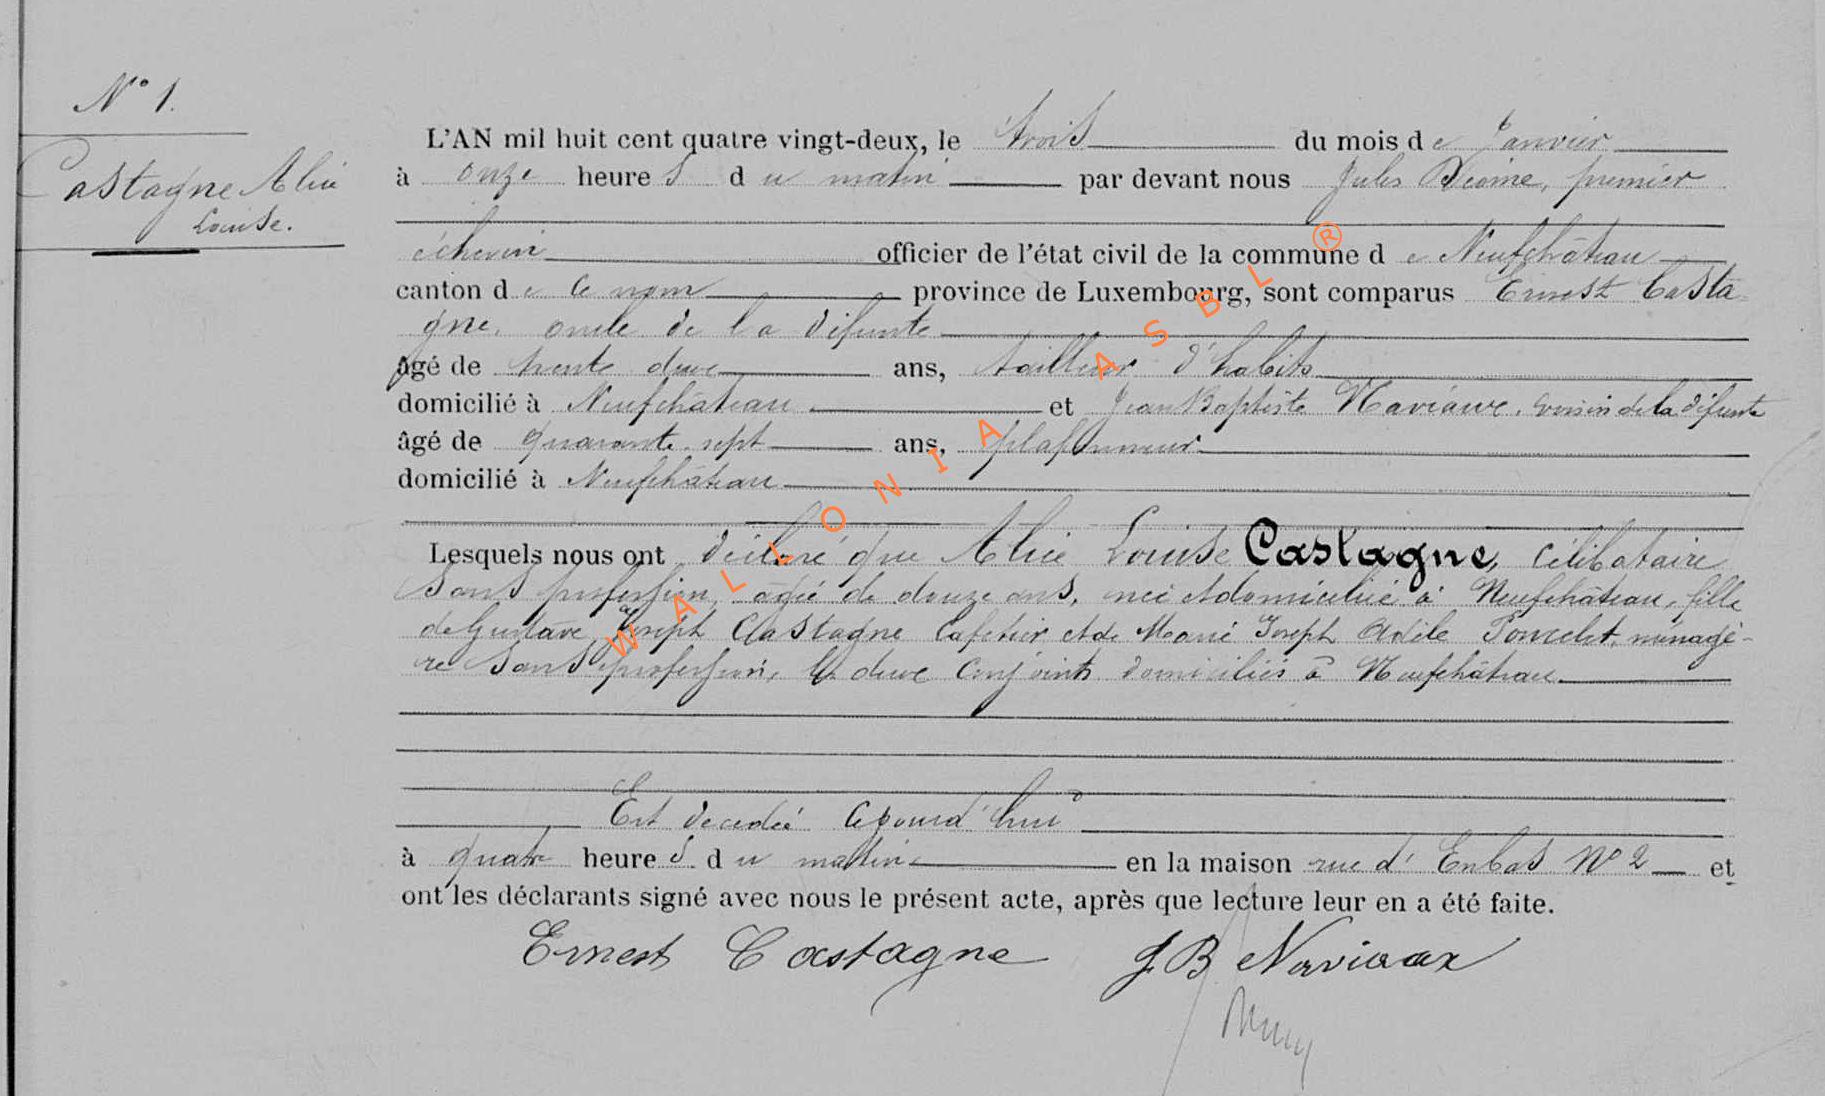 N° 1.
Castagne Alice
Louise.
L'AN mil huit cent quatre vingt-deux, le trois du mois de Janvier
à onze heures du matin par devant nous Jules premier
échevin officier de l'état civil de la commune de Neufchâteau
canton de ce nom province de Luxembourg, sont comparus Ernest Casta-
gne, oncle de la défunte
âgé de trente deux ans, tailleur d'habits
domicilié à Neufchâteau et Jean Baptiste Naviaux, voisin de la défunte
âgé de quarante-sept ans, plafonneur
domicilié à Neufchâteau
Lesquels nous ont déclaré que Alice Louise Castagne, célibataire
sans profession, âgée de douze ans, née et domiciliée à Neufchâteau, fille
de Gustave Joseph Castagne cafetier et de Marie Joseph Adèle Poncelet, ménagè-
re sans profession, les deux conjoints domiciliés à Neufchâteau
Est décédée cejourd'hui
à quatre heures du matin en la maison rue d'Enbas N° 2 et
ont les déclarants signé avec nous le présent acte, après que lecture leur en a été faite.
Ernest Castagne J B Naviaux
WALLONIA ASBL ®